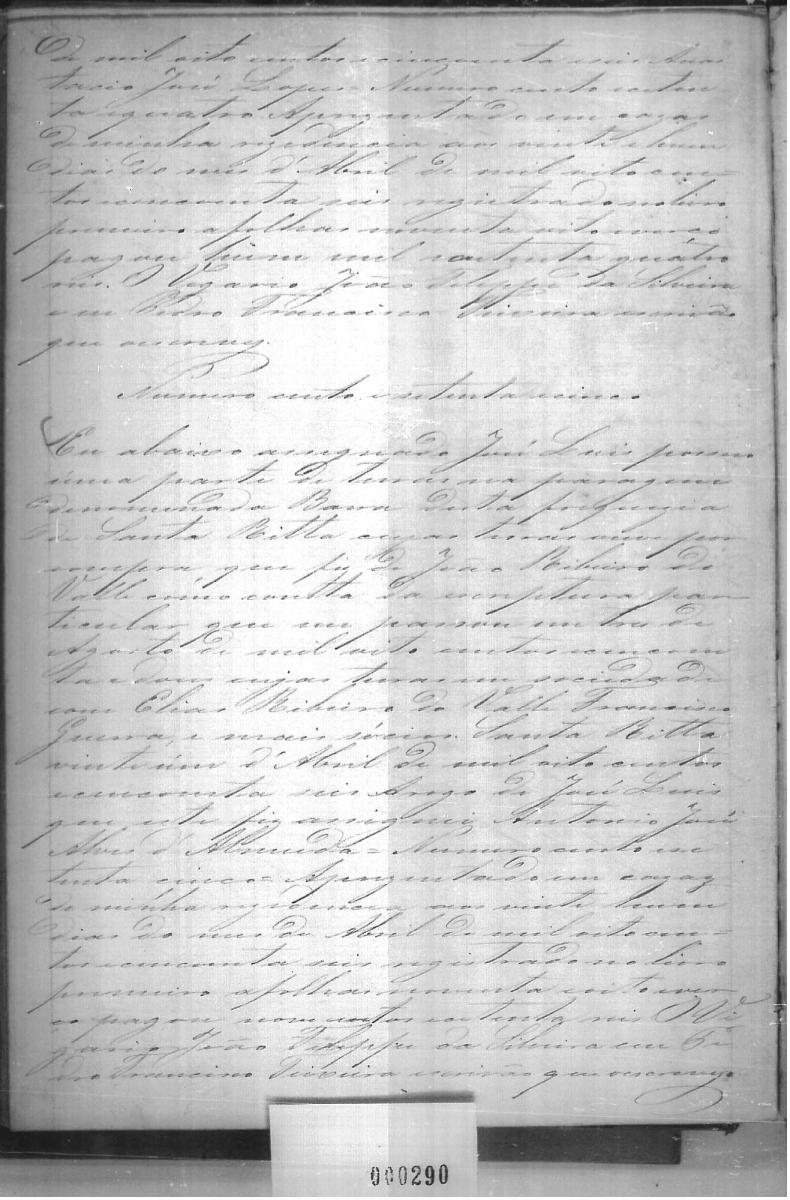 de mil oito centos e cincoenta seis Anas
tacio José Lopes = Numero cento e seten
ta e quatro Aprezentado em cazas
de minha rezidencia aos vinte e hum
dias do mes d'Abril de mil oito cen=
tos e cincoenta seis registrado no livro
primeiro a folhas noventa oito verço
pagou hum mil e setenta quatro
reis. O Vigario João Felippe da Silveira
e eu Pedro Francisco Teixeira escrivão
que o escrevy.
Numero cento e setenta e cinco
Eu abaixo assignado José Luis possuo
uma parte de terras na paragem
denominada Barra desta freguezia
de Santa Ritta cujas terras ouve por
compra que fiz de João Ribeiro do
Valle como consta da escriptura par
ticular que me passou em tres de
Agosto de mil oito centos e cincoen
ta e dous cujas terras em sociedade
com Elias Ribeiro do Valle Francisco
Guerra, e mais sócios. Santa Ritta
vinte úm d'Abril de mil oito centos
e cincoenta seis Arogo de José Luis
que este fiz assignei Antonio José
Alves d'Almeida = Numero cento e se
tenta cinco = Aprezentado em cazas
de minha rezidencia aos vinte hum
dias do mes de Abril de mil oito cen=
tos e cincoenta seis registrado no livro
primeiro a folhas noventa e oito ver
ço pagou nove centos e setenta reis O Vi
gario João Felippe da Silveira e eu Pe
dro Francisco Teixeira escrivão que o escrevy
000290